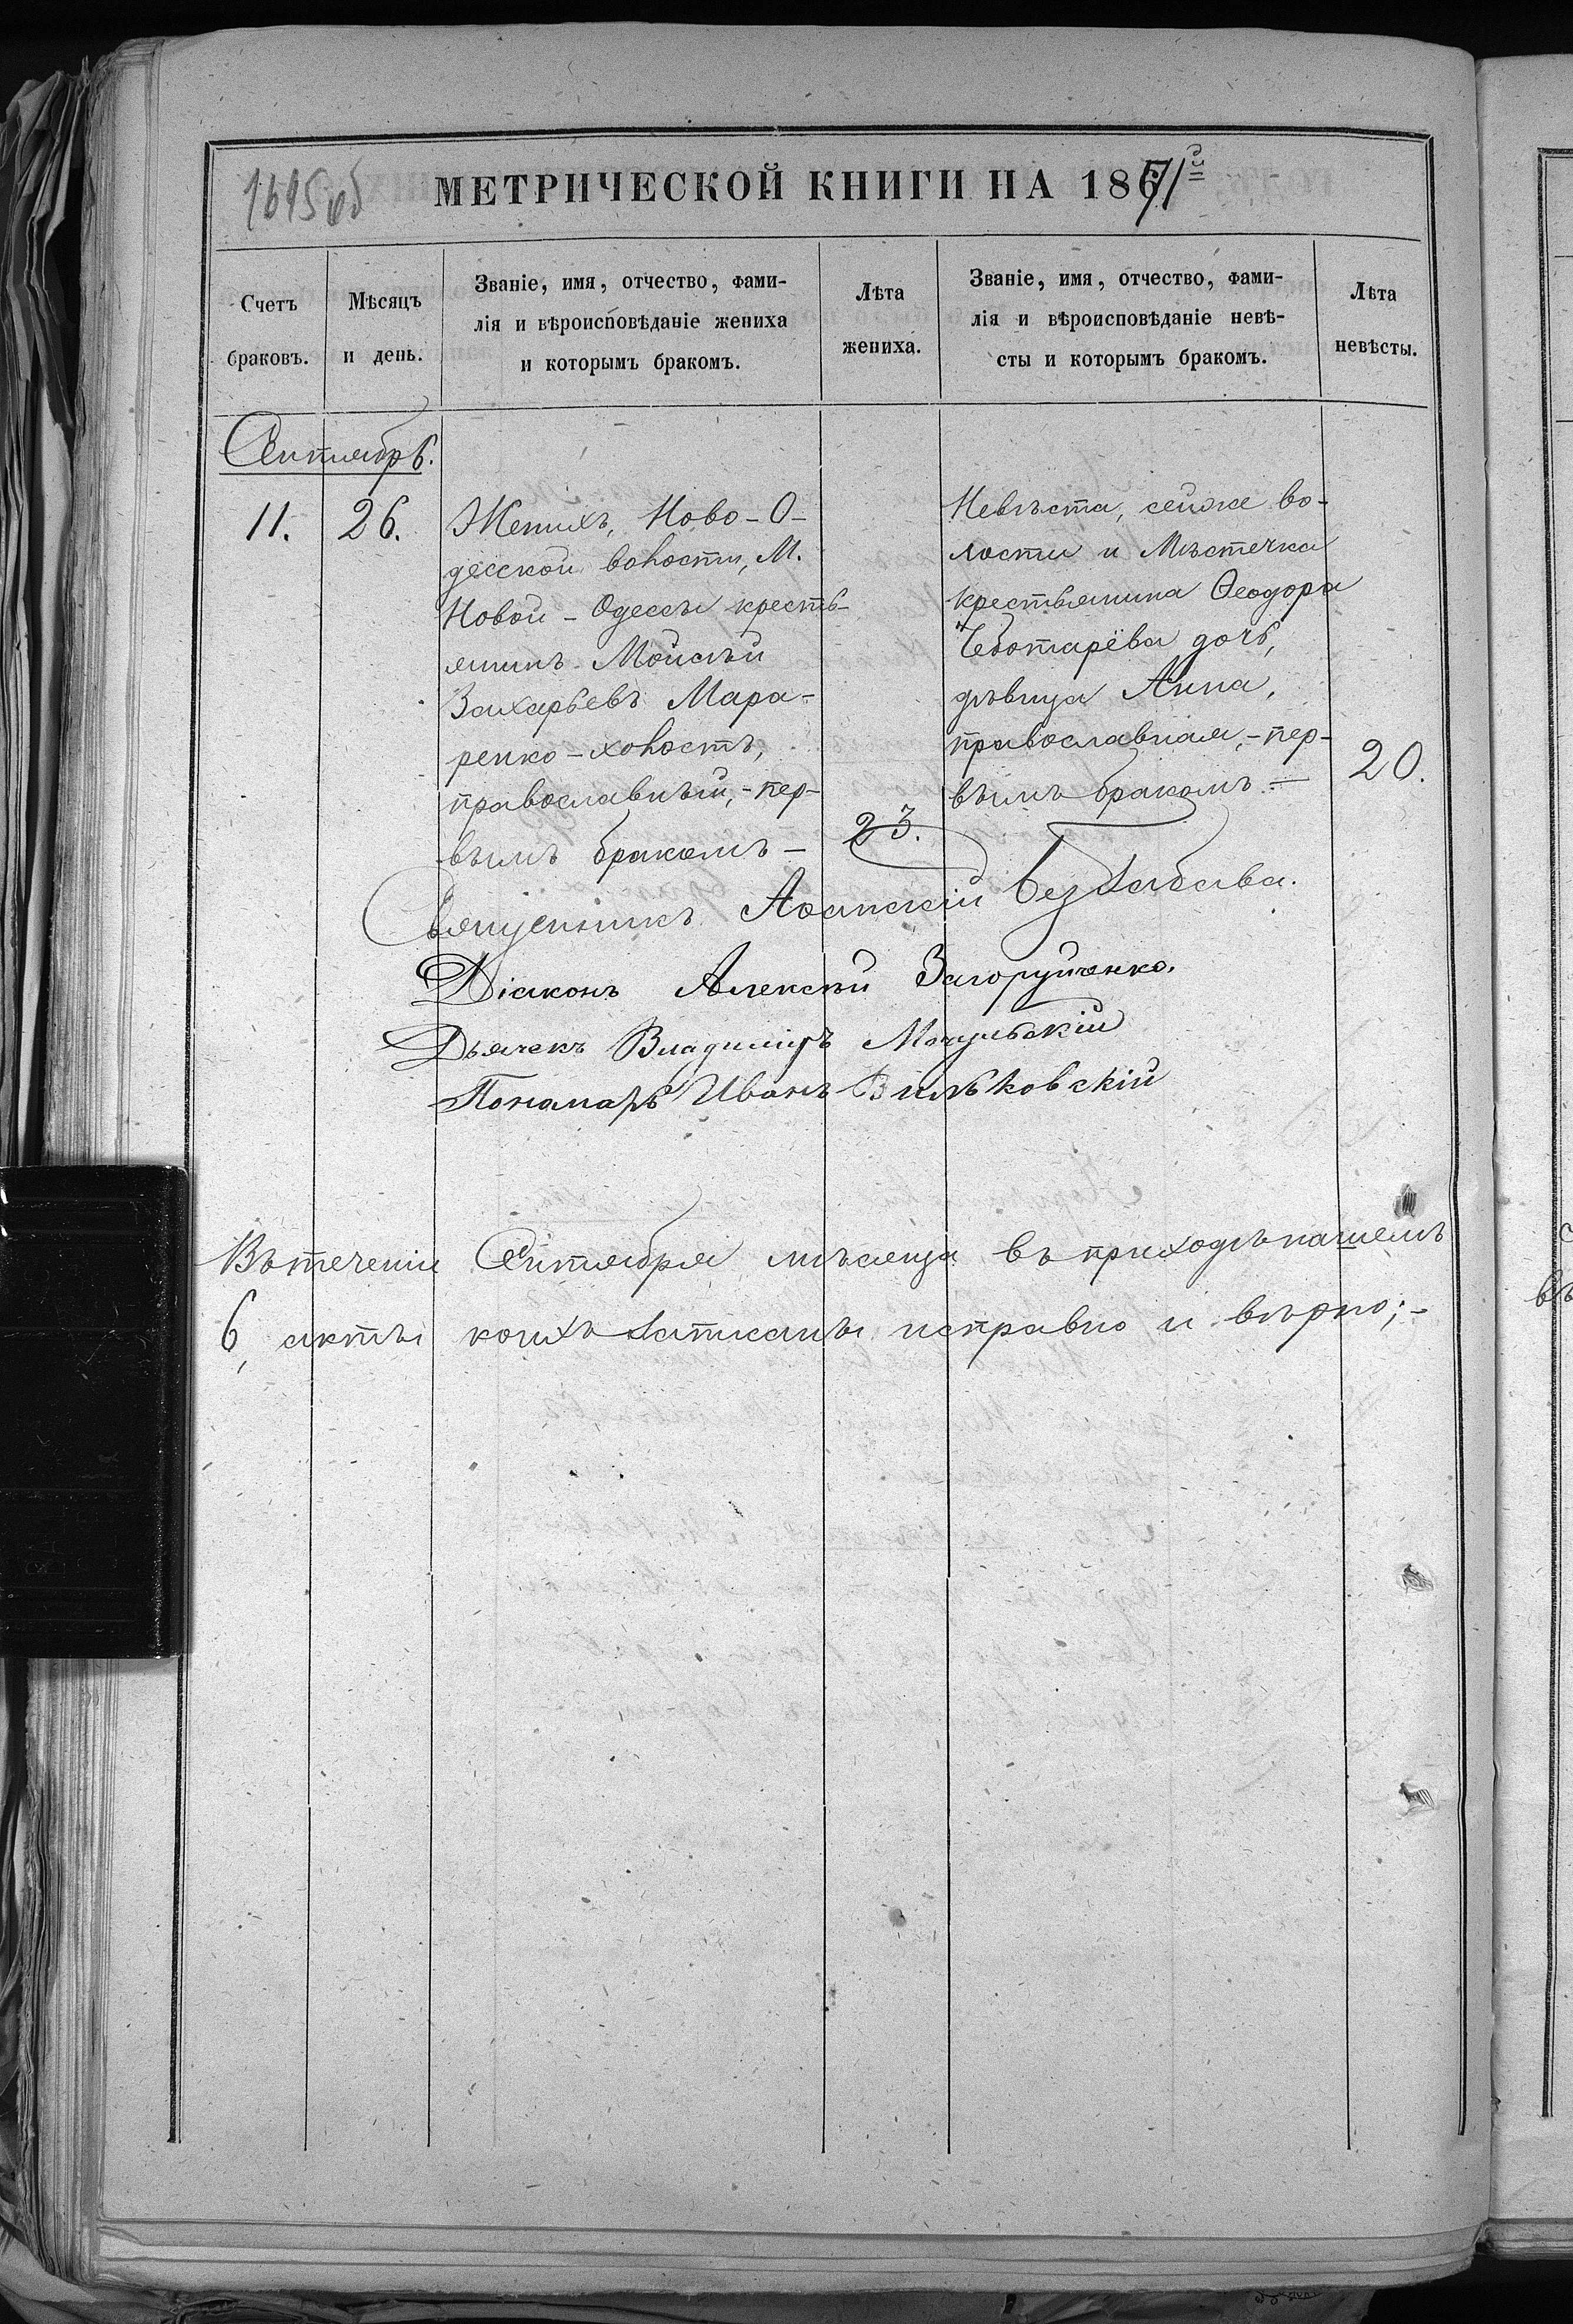 1645об
МЕТРИЧЕСКОЙ КНИГИ НА 1871й
Счетъ браковъ.
Мѣсяцъ и день.
Званіе, имя, отчество, фами-
лія и вѣроисповѣданіе жениха
и которымъ бракомъ.
Лѣта жениха.
Званіе, имя, отчество, фами-
лія и вѣроисповѣданіе невѣ-
сты и которымъ бракомъ.
Лѣта невѣсты.
Сентябрь.
11.
26.
Женихъ, Ново-О-
десской волости, М.
Новой-Одессы кресть-
янинъ Мойсѣй
Захарьевъ Мара-
ренко-холостъ,
православный,-пер-
вымъ бракомъ-
23.
Невѣста, сейже во-
лости и Мѣстечка
крестьянина Ѳеодора
Чеботарёва дочь,
дѣвица Анна,
православная,-пер-
вымъ бракомъ-
20.
Священникъ Аѳанасій Беззабава.
Діаконъ Алексѣй Загоруйченко.
Дьячекъ Владиміръ Мочульскій
Понамарь Иванъ Вильковскій
Въ теченіи Сентября мѣсяца въ приходѣ нашемъ
6, акты коихъ записаны исправно и вѣрно;-